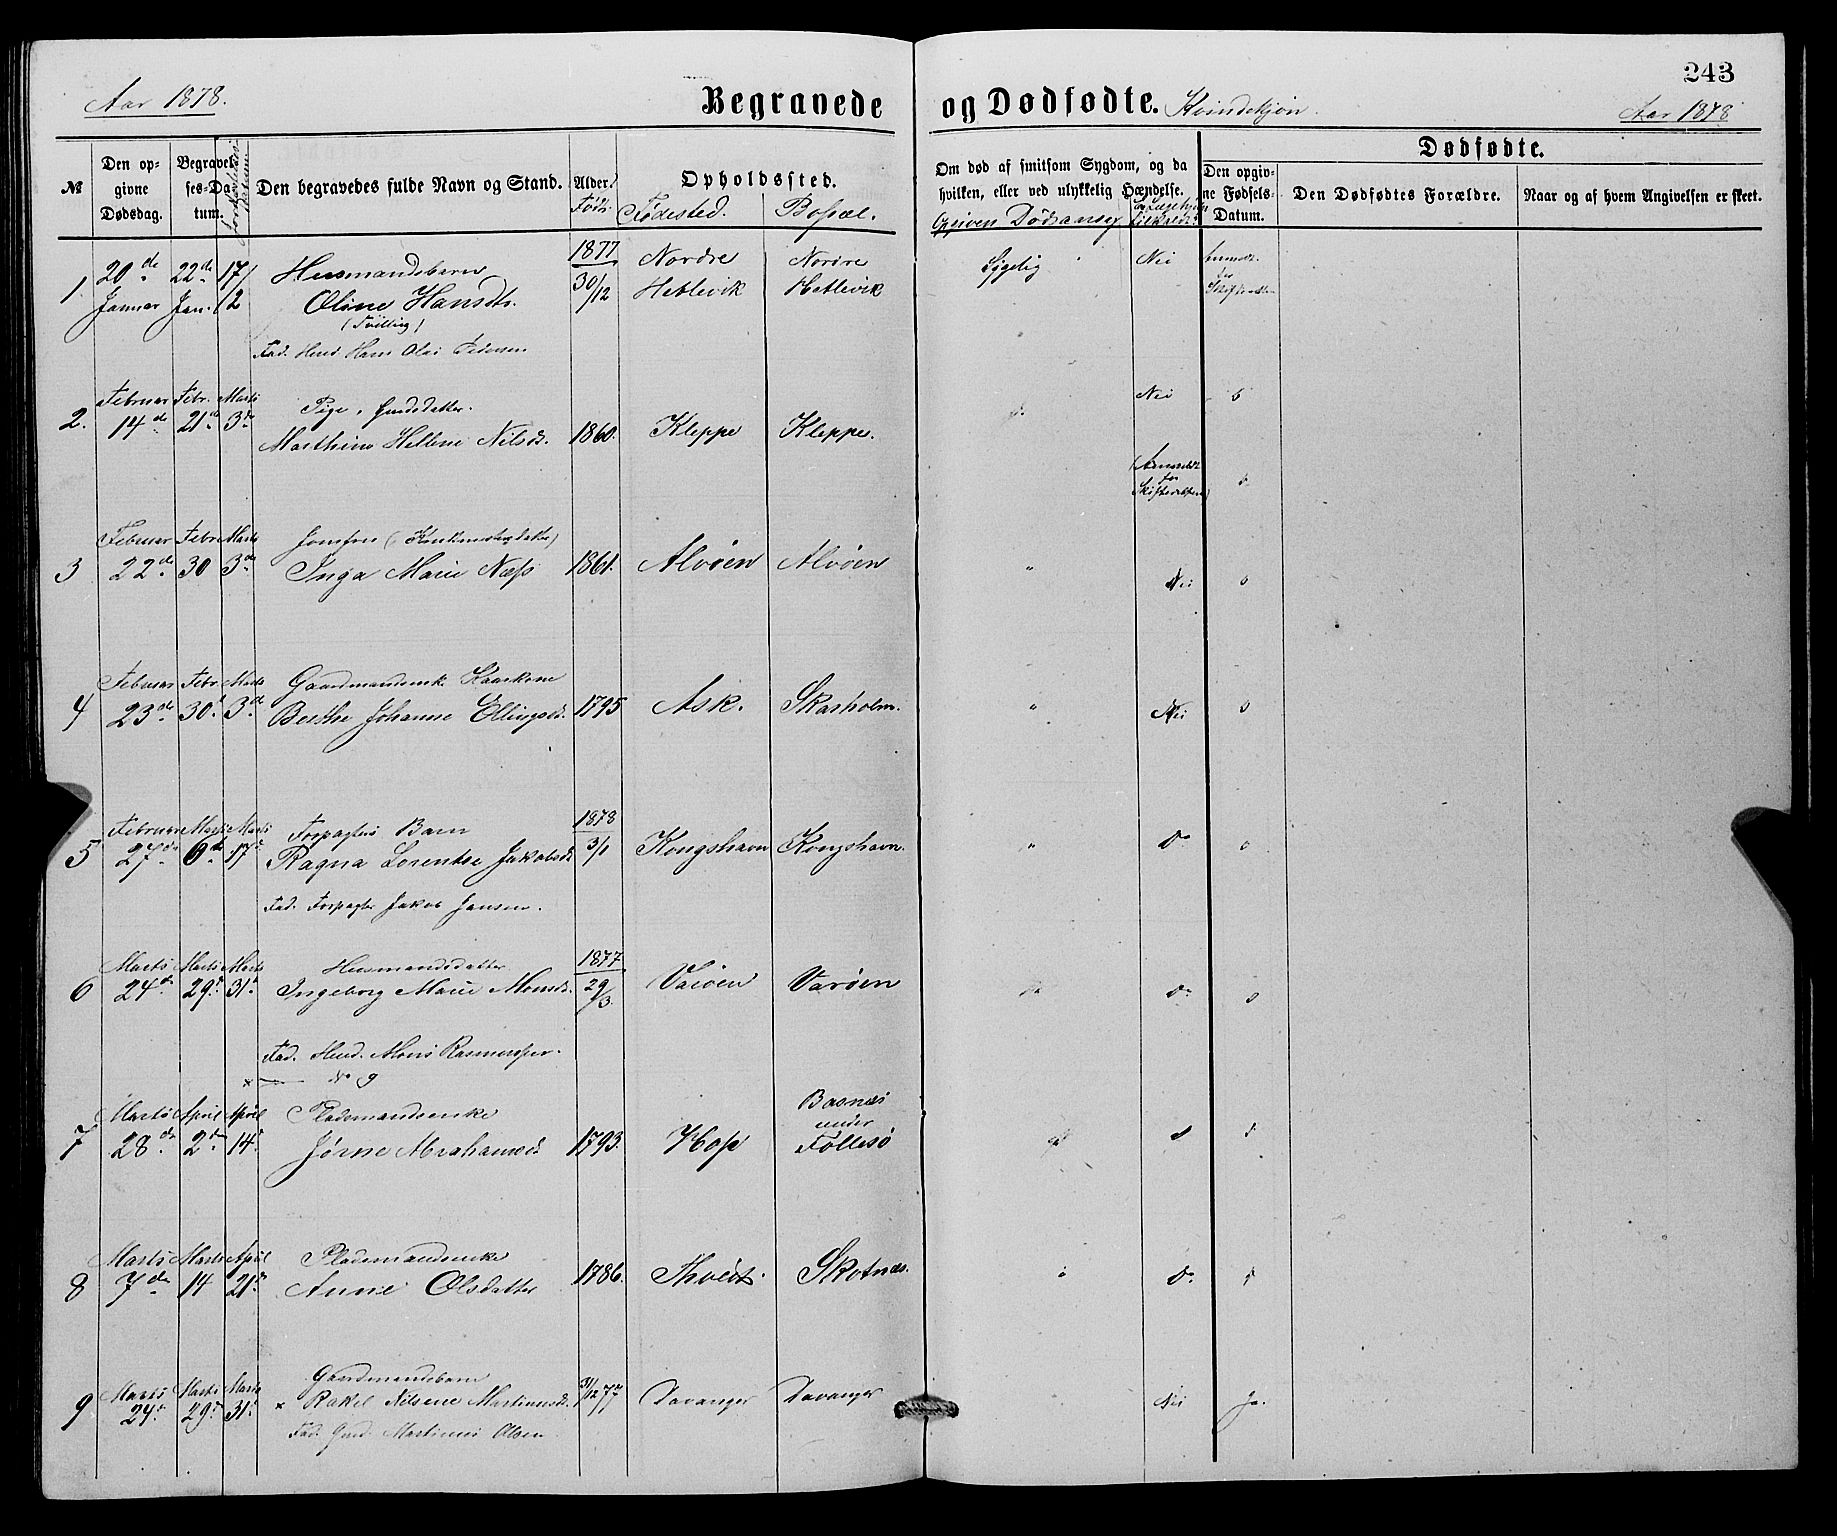 243
Aar 1878.
Begravede og Dødfødte. Kvindekjøn.
Aar 1878
№
Den opgivne Dødsdag.
Begravelses-Datum.
Den begravedes fulde Navn og Stand.
Alder. Født.
Opholdssted.
Fødested. Bopæl.
Om død af smitsom Sygdom, og da hvilken, eller ved ulykkelig Hændelse.
Opgiven Dødsaarsag
Dødfødte.
Den opgivne Fødsels-Datum.
Den Dødfødtes Forældre.
Naar og af hvem Angivelsen er skeet.
1 20de Januar 22de Jan. 17/2 Husmandsbarn 1877 30/12 Nordre Hetlevik Nordre Hetlevik Sygelig Nei Anmeldt for
Oline Hansdtr.
(Tvilling)
Fad. Husd. Hans Olai Pedersen
2. Februar 14de Febr. 21de Marts 3de Pige, Gaardsdatter. 1860. Kleppe Kleppe. do Nei
Marthine Helline Nilsd.
(Anmeldt for Skifteretten)
3 Februar 22de Febr 30 Marts 3de Jomfru 1861. Alvøen Alvøen " Nei
Inga Marie Næss
4 Februar 23de Febr 30. Marts 3de Gaardmandsenke Kaarkone 1795 Ask. Skarholm. " Nei
Berthe Johanne Ellingsd.
5 Februar 27de Marts 6de Marts 17d Forpagters Barn 1878 3/1 Kongshavn Kongshavn. " Do
Ragna Lorentse Jakobsd.
Fad. Forpagter Jakob Jansen.
6 Marts 24de Marts 29d Marts 31d Husmandsdatter 1877 29/3. Varøen Varøen do Do
Ingeborg Marie Monsd.
Fad. Husd. Mons Rasmussen.
× No 9
7 Marts 28de April 2de April 14d Pladsmandsenke 1793. Hop Basnes under Follesø
Jørne Abrahamsd.
8 Marts 7de Marts 14 April 21d Pladsmandsenke 1786. Skotnes. Do
Anne Olsdatter
9 Marts 24d Marts 29d Marts 31d Gaardmandsbarn 31/12 77 Davanger Davanger Nei Ja.
× Rakel Nilsene Martinusd.
Fad. Gmd. Martinus Olsen